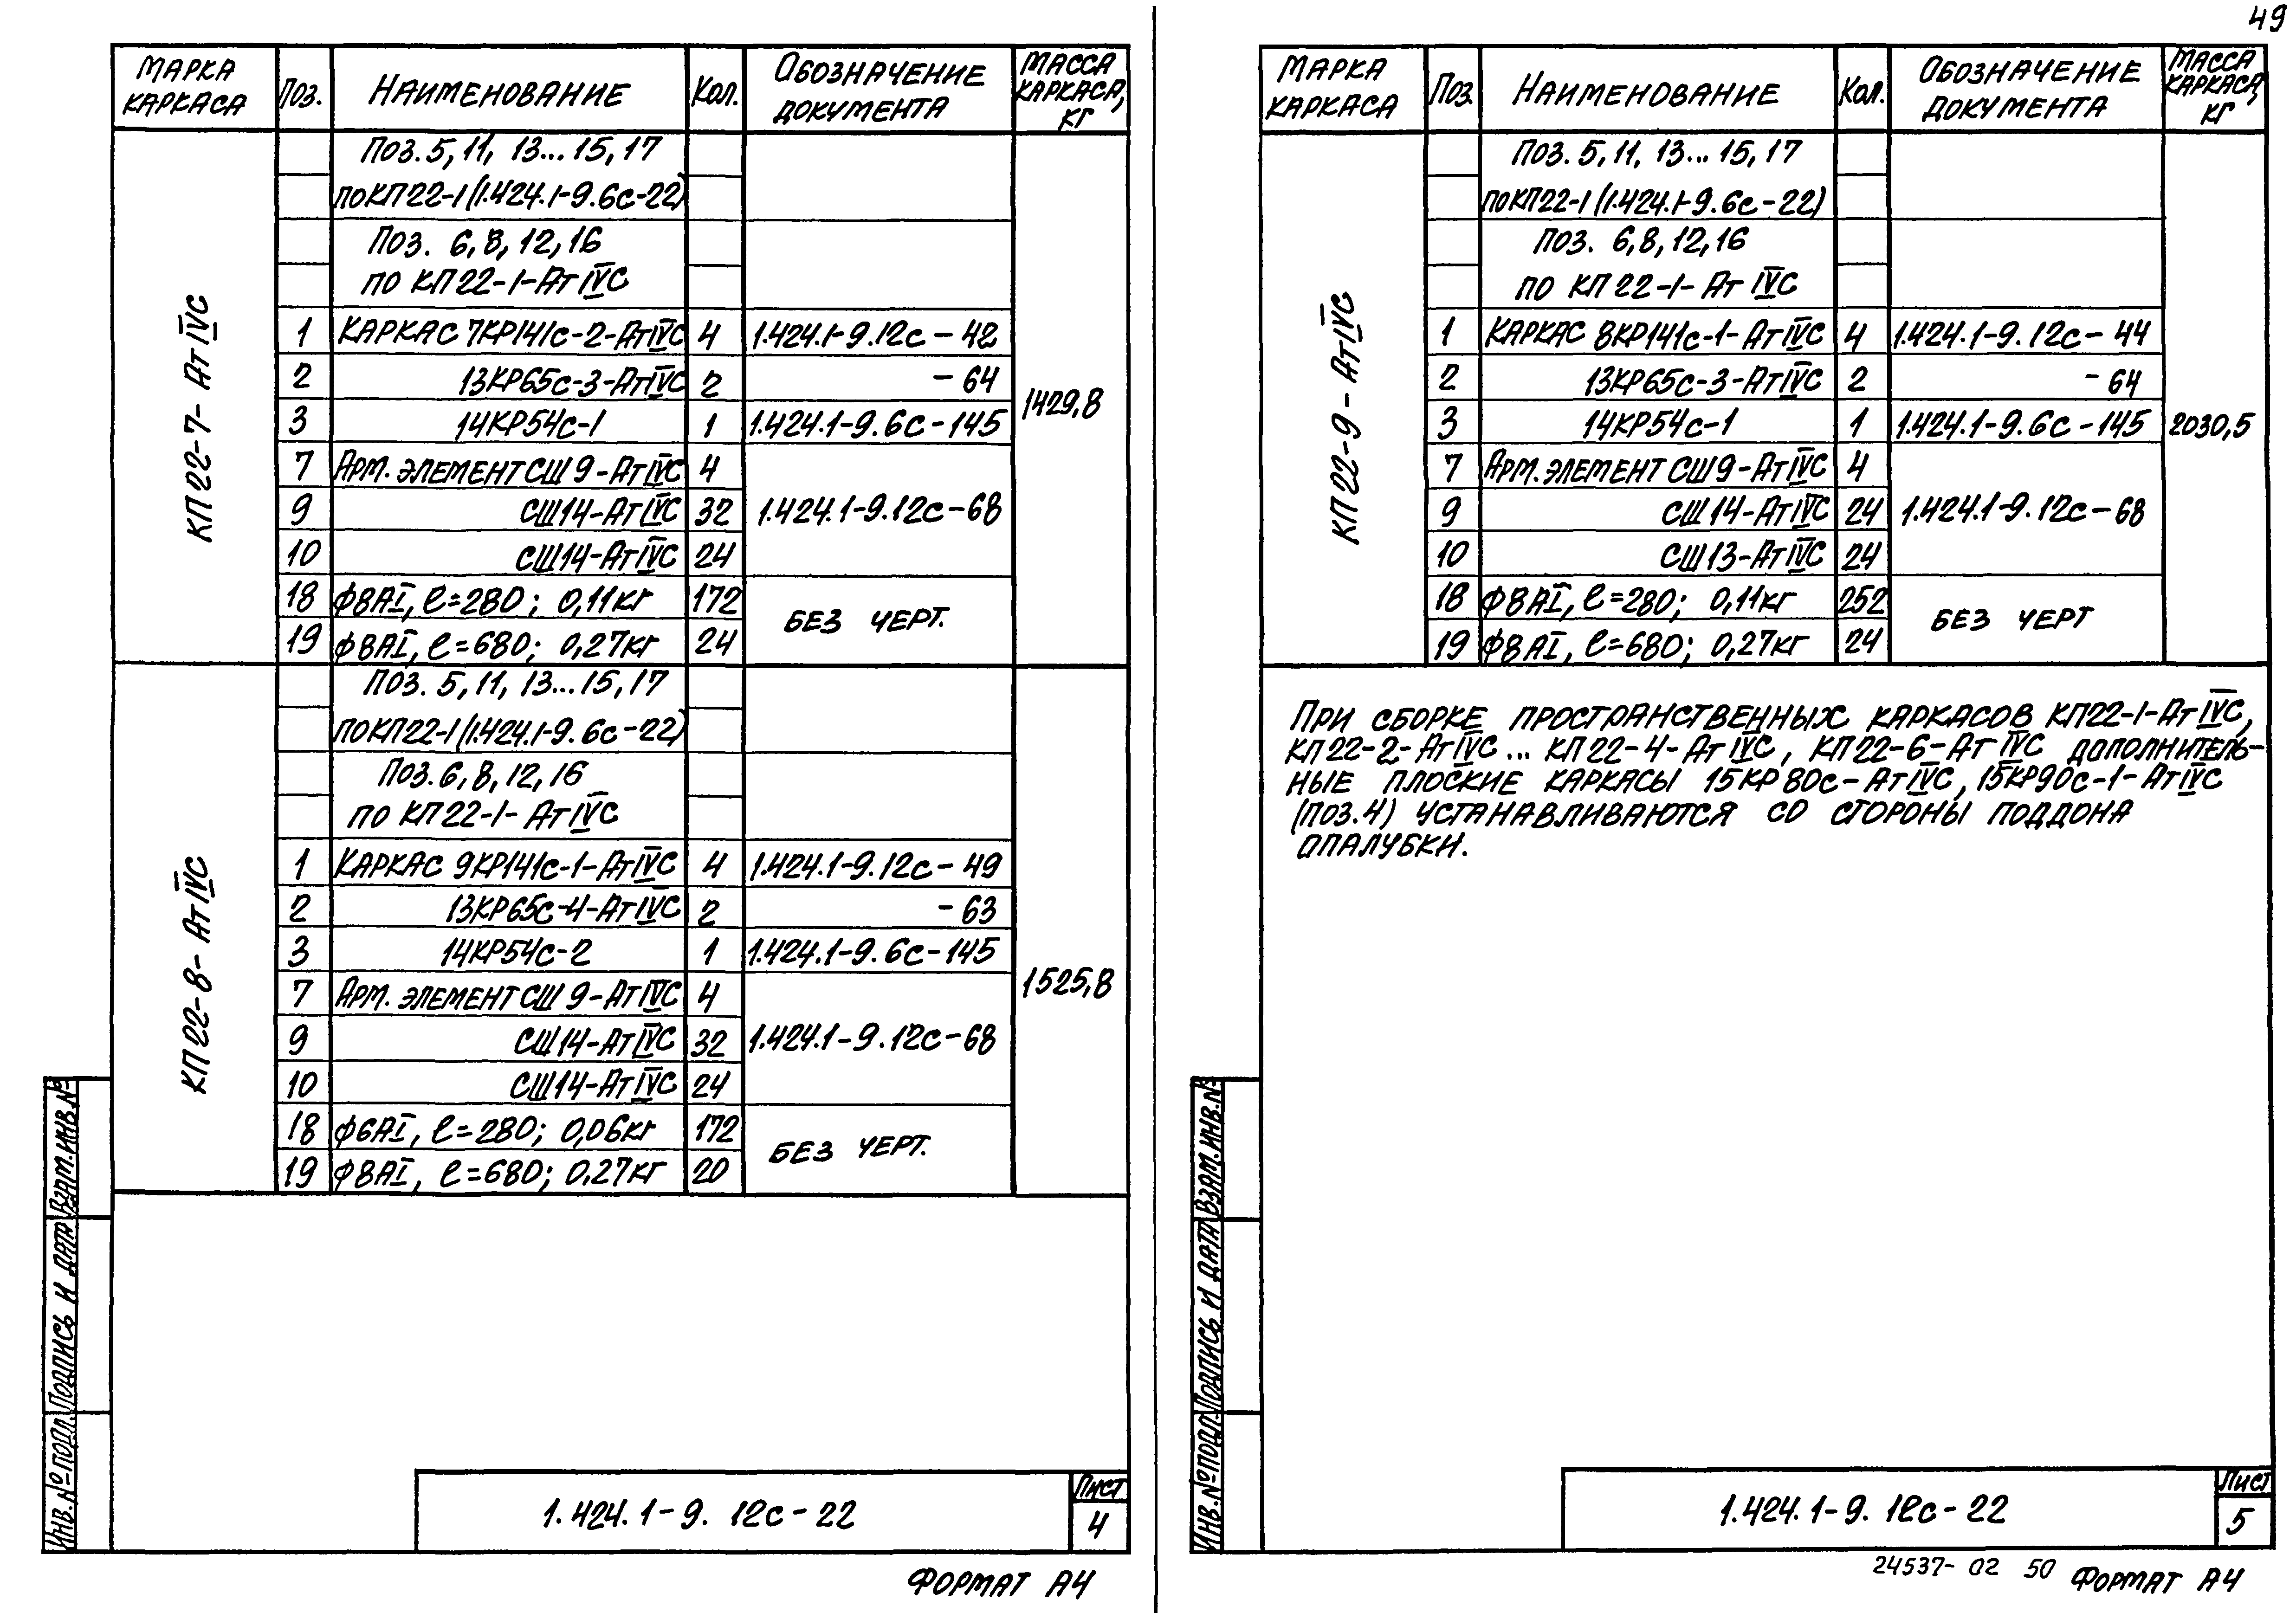 49
МАРКА КАРКАСА | ПОЗ. | НАИМЕНОВАНИЕ | КОЛ. | ОБОЗНАЧЕНИЕ ДОКУМЕНТА | МАССА КАРКАСА, КГ
КП22-7-АтIVС
ПОЗ. 5, 11, 13...15, 17
ПО КП22-1 (1.424.1-9.6с-22)
ПОЗ. 6, 8, 12, 16
ПО КП22-1-АтIVС
1 КАРКАС 7КР141с-2-АтIVС 4 1.424.1-9.12с-42
2 13КР65с-3-АтIVС 2 -64
1429,8
3 14КР54с-1 1 1.424.1-9.6с-145
7 АРМ. ЭЛЕМЕНТ СШ9-АтIVС 4
9 СШ14-АтIVС 32 1.424.1-9.12с-68
10 СШ14-АтIVС 24
18 ф8АI, ℓ=280; 0,11кг 172
БЕЗ ЧЕРТ.
19 ф8АI, ℓ=680; 0,27кг 24
КП22-8-АтIVС
ПОЗ. 5, 11, 13...15, 17
ПО КП22-1 (1.424.1-9.6с-22)
ПОЗ. 6, 8, 12, 16
ПО КП22-1-АтIVС
1 КАРКАС 9КР141с-1-АтIVС 4 1.424.1-9.12с-49
2 13КР65с-4-АтIVС 2 -63
3 14КР54с-2 1 1.424.1-9.6с-145
1525,8
7 АРМ. ЭЛЕМЕНТ СШ9-АтIVС 4
9 СШ14-АтIVС 32 1.424.1-9.12с-68
10 СШ14-АтIVС 24
18 ф6АI, ℓ=280; 0,06кг 172
БЕЗ ЧЕРТ.
19 ф8АI, ℓ=680; 0,27кг 20
ИНВ.№ПОДЛ. ПОДПИСЬ И ДАТА ВЗАМ.ИНВ.№
1.424.1-9.12с-22
ЛИСТ
4
ФОРМАТ А4
МАРКА КАРКАСА | ПОЗ | НАИМЕНОВАНИЕ | КОЛ. | ОБОЗНАЧЕНИЕ ДОКУМЕНТА | МАССА КАРКАСА, КГ
КП22-9-АтIVС
ПОЗ. 5, 11, 13...15, 17
ПО КП22-1 (1.424.1-9.6с-22)
ПОЗ. 6, 8, 12, 16
ПО КП22-1-АтIVС
1 КАРКАС 8КР141с-1-АтIVС 4 1.424.1-9.12с-44
2 13КР65с-3-АтIVС 2 -64
3 14КР54с-1 1 1.424.1-9.6с-145 2030,5
7 АРМ. ЭЛЕМЕНТ СШ9-АтIVС 4
9 СШ14-АтIVС 24 1.424.1-9.12с-68
10 СШ13-АтIVС 24
18 ф8АI, ℓ=280; 0,11кг 252
БЕЗ ЧЕРТ
19 ф8АI, ℓ=680; 0,27кг 24
ПРИ СБОРКЕ ПРОСТРАНСТВЕННЫХ КАРКАСОВ КП22-1-АтIVС,
КП22-2-АтIVС...КП22-4-АтIVС, КП22-6-АтIVС ДОПОЛНИТЕЛЬ-
НЫЕ ПЛОСКИЕ КАРКАСЫ 15КР80с-АтIVС, 15КР90с-1-АтIVС
(ПОЗ.4) УСТАНАВЛИВАЮТСЯ СО СТОРОНЫ ПОДДОНА
ОПАЛУБКИ.
ИНВ.№ПОДЛ. ПОДПИСЬ И ДАТА ВЗАМ.ИНВ.№
1.424.1-9.12с-22
ЛИСТ
5
24537-02 50
ФОРМАТ А4